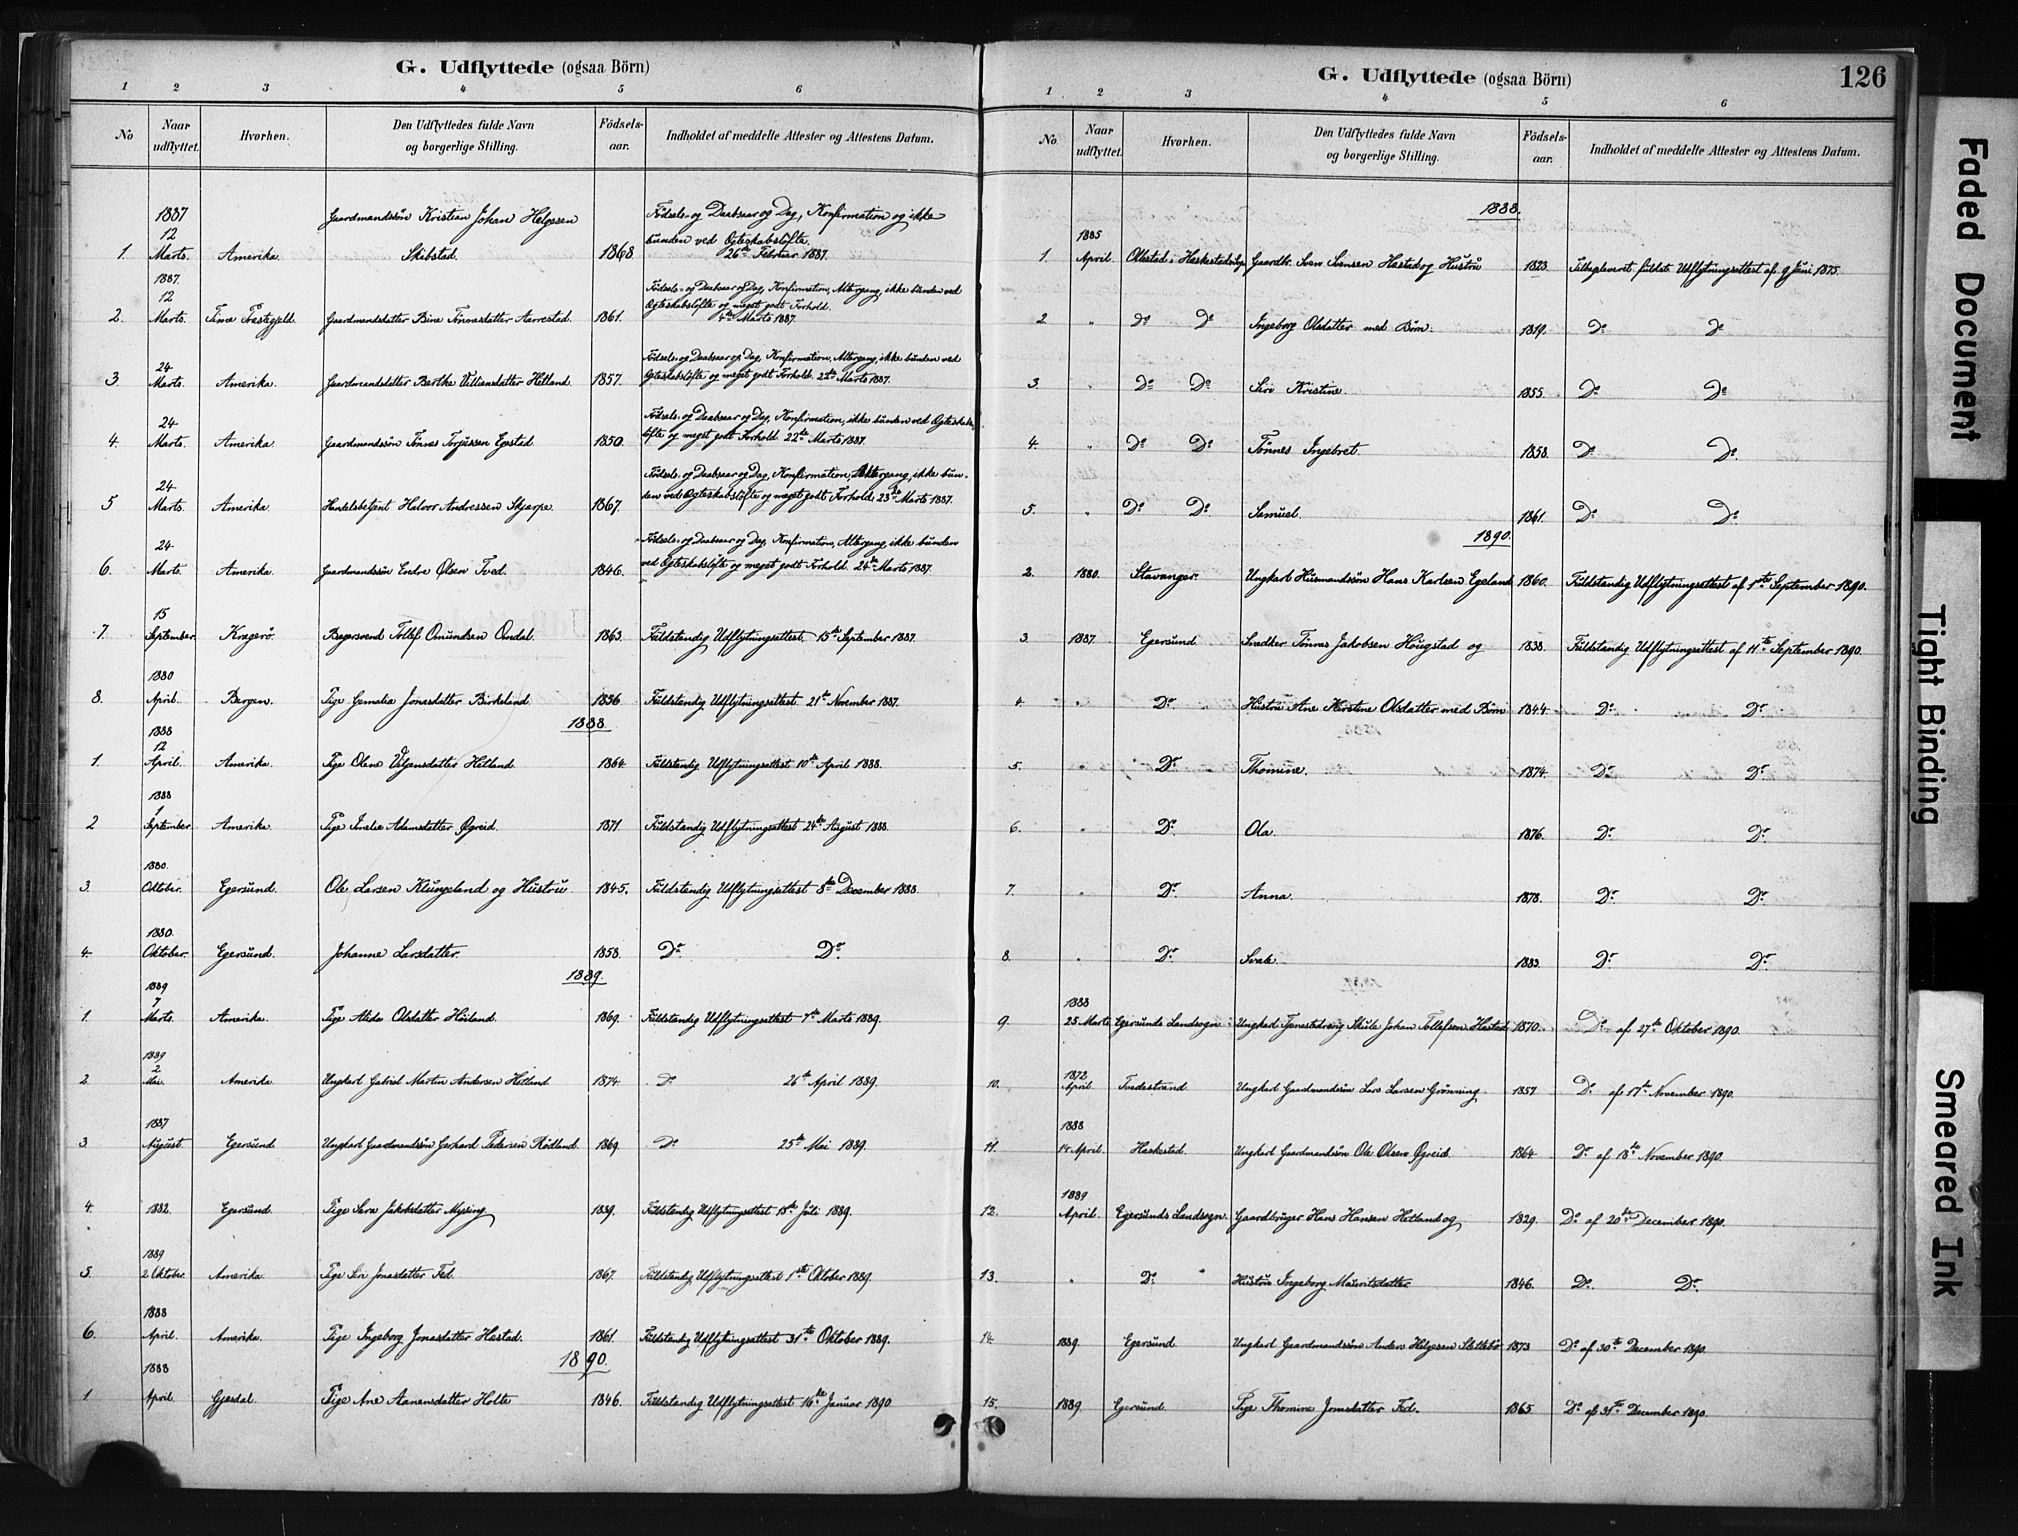 G. Udflyttede (ogsaa Börn)
1 2 3 4 5 6
No Naar udflyttet. Hvorhen. Den Udflyttedes fulde Navn og borgerlige Stilling. Födsels-aar. Indholdet af meddelte Attester og Attestens Datum.
1. 1887 12 Marts. Amerika. Gaardmandssön Kristian Johan Helgesen Skibstad. 1868. Födsels- og Daabsaar og Dag, Konfirmation og ikke bunden ved Egteskabslöfte. 26de Februar 1887.
2. 1887. 12 Marts. Time Præstegjeld. Gaardmandsdatter Bine Tönnesdatter Aarrestad. 1861. Födsels- og Daabsaar og Dag, Konfirmation, Altergang, ikke bunden ved Egteskabslöfte og meget godt Forhold. 4de Marts 1887.
3. 24 Marts. Amerika. Gaardmandsdatter Berthe Villiamsdatter Hetland 1857. Födsels- og Daabsaar og Dag, Konfirmation, Altergang, ikke bunden ved Egteskabslöfte og meget godt Forhold. 22de Marts 1887.
4. 24 Marts. Amerika. Gaardmandssön Tönnes Torjussen Egestad. 1850. Födsels- og Daabsaar og Dag, Konfirmation, ikke bunden ved Egteskabslöfte og meget godt Forhold. 22de Marts 1887.
5 24 Marts. Amerika. Handelsbetjent Halvor Andreassen Skjerpe. 1867. Födsels- og Daabsaar og Dag, Konfirmation, Altergang, ikke bunden ved Egteskabslöfte og meget godt Forhold. 23de Marts 1887.
6. 24 Marts. Amerika. Gaardmandssön Endre Olsen Tved. 1846. Födsels- og Daabsaar og Dag, Konfirmation, Altergang, ikke bunden ved Egteskabslöfte og meget godt Forhold. 24de Marts 1887.
7. 15 September. Kragerö. Bagersvend Tollef Omundsen Omdal. 1863. Fuldstændig Udflytningsattest. 15de September 1887.
8. 1880 April. Bergen. Pige Cornelia Jonasdatter Birkeland. 1856 Fuldstendig Udflytningsattest. 21de November 1887.
1888.
1. 1888 12 April. Amerika. Pige Olene Vilhjemsdatter Hetland 1864. Fuldstændig Udflytningsattest 10de April 1888.
2 1888 1 September Amerika. Pige Amalie Adamsdatter Ögreid. 1871. Fuldstændig Udflytningsattest 24de August 1888.
3. 1880. Oktober. Egersund. Ole Larsen Klungeland og Hustru 1845. Fuldstændig Udflytningsattest 8de December 1888.
4. 1880. Oktober. Egersund. Johanne Larsdatter. 1858. Do Do
1889.
1. 1889 7 Marts. Amerika. Pige Alida Olsdatter Höiland. 1869. Fuldstændig Udflytningsattest 7de Marts 1889.
2. 1889 2 Mai. Amerika Ungkarl Gabriel Martin Andersen Hetland 1874. Do 26de April 1889.
3 1887 August. Egersund. Ungkarl Gaardmandssön Gerhard Pedersen Rödland. 1869. Do 25de Mai 1889.
4. 1882. Egersund. Pige Sara Jakobsdatter Mysing 1839. Fuldstændig Udflytningsattest 18de Juli 1889.
5. 1889 2 Oktober. Amerika. Pige Siri Jonasdatter Fed. 1867. Fuldstændig Udflytningsattest 1ste Oktober 1889.
6. 1888 April. Amerika. Pige Ingeborg Jonasdatter Hæstad. 1861. Fuldstændig Udflytningsattest 31te Oktober 1889.
1890.
1 1888 April. Gjesdal. Pige Ane Aanensdatter Holte 1846. Fuldstændig Udflytningsattest 16de Januar 1890
G. Udflyttede (ogsaa Börn) 126
1 2 3 4 5 6
No Naar udflyttet. Hvorhen. Den Udflyttedes fulde Navn og borgerlige Stilling. Födsels-aar. Indholdet af meddelte Attester og Attestens Datum.
1888.
1. 1885 April Ollestad i Heskestadsogn Gaardbr. Sven Svensen Hæstad og Hustru 1823. Tilbageleveret fuldst. Udflytningsattest af 9 Juni 1875.
2 " Do Do Ingeborg Olsdatter med Börn. 1819. Do Do
3. " Do Do Siri Kristine. 1855. Do Do
4. " Do Do Tönnes Ingebret. 1858. Do Do.
5. " Do Do. Samuel. 1861. Do Do
1890.
2. 1880. Stavanger. Ungkarl Husmandssön Hans Karlsen Egeland 1860. Fuldstændig Udflytningsattest af 1ste September 1890.
3. 1887. Egersund Snedker Tönnes Jakobsen Haugstad og 1838. Fuldstændig Udflytningsattest af 11te September 1890.
4. " Do. Hustru Ane Kirstine Olsdatter med Börn 1844. Do. Do.
5. " Do. Thomine. 1874. Do. Do.
6. " Do. Ola. 1876. Do. Do.
7. " Do. Anna. 1878. Do. Do.
8. " Do. 1883. Do. Do.
9. 1888 25 Marts Egersunds Landsogn Ungkarl Tjenestedreng Skule Johan Tollefsen Hæstad 1870. Do af 27de Oktober 1890.
10. 1872 April. Tvedestrand Ungkarl Gaardmandssön Lars Larsen Grönning 1857 Do. af 17de November 1890.
11. 1888 14 April. Heskestad. Ungkarl Gaardmandssön Ole Olsen Ögreid. 1864. Do. af 18de November 1890.
12. 1889 April. Egersunds Landsogn. Gaardbruger Hans Hansen Hetland og 1829. Do. af 20de December 1890.
13. " Do. " Hustru Ingeborg Mauritsdatter 1846. Do. Do.
14. 1889. Egersund. Ungkarl Gaardmandssön Anders Helgesen Slettebö 1873 Do. af 30te December 1890.
15. 1889. Egersund. Pige Thomine Jonasdatter Fed. 1865 Do. af 31te December 1890.
Faded Document
Tight Binding
Smeared Ink